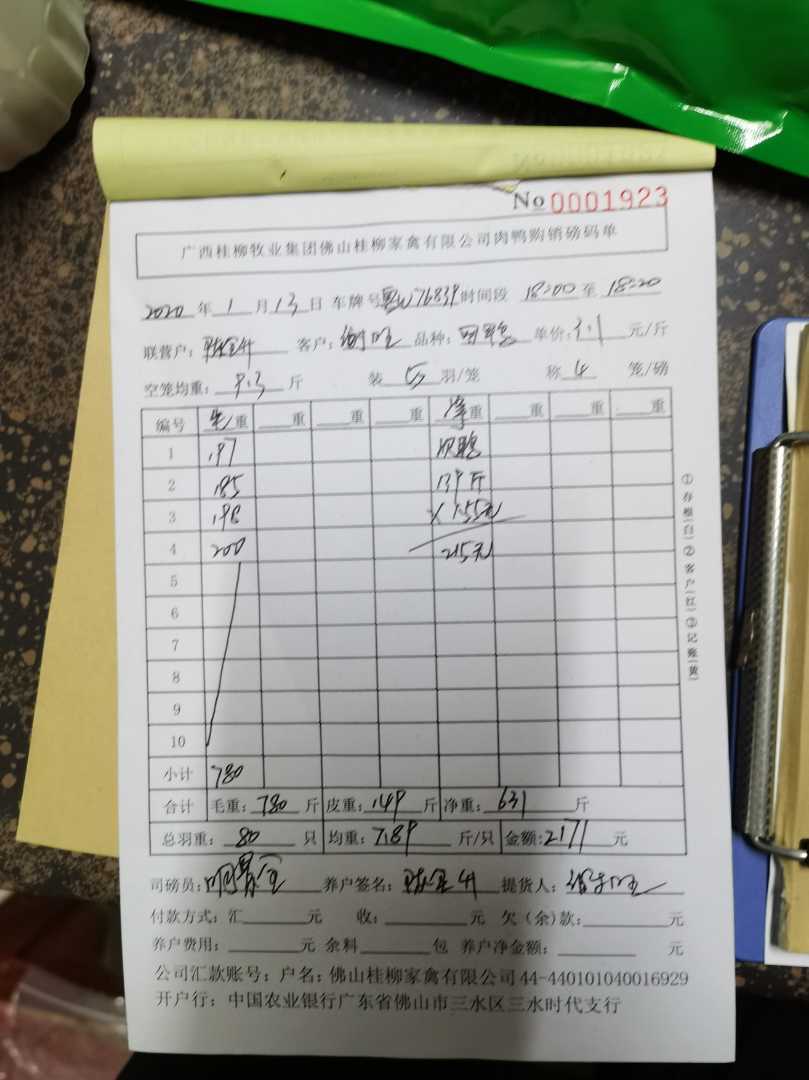 No 0001923
广西桂柳牧业集团佛山桂柳家禽有限公司肉鸭购销磅码单
2020 年 1 月 13 日 车牌号 粤W76839 时间段 18:00 至 18:20
联营户: 客户: 品种: 单价: 元/斤
空笼均重: 9.3 斤 装 5 羽/笼 称 4 笼/磅
编号 毛重 重 重 重 净重 重 重 重
1 197
2 185 139斤
3 198 ×1.55元
4 200 215元
5
6
7
8
9
10
小计 780
合计 毛重: 780 斤 皮重: 149 斤 净重: 631 斤
总羽重: 80 只 均重: 7.89 斤/只 金额: 2171 元
司磅员: 养户签名: 提货人:
付款方式: 汇 元 收: 元 欠(余)款: 元
养户费用: 元 余料 包 养户净金额: 元
公司汇款账号: 户名: 佛山桂柳家禽有限公司 44-440101040016929
开户行: 中国农业银行广东省佛山市三水区三水时代支行
①存根(白)②客户(红)③记账(黄)